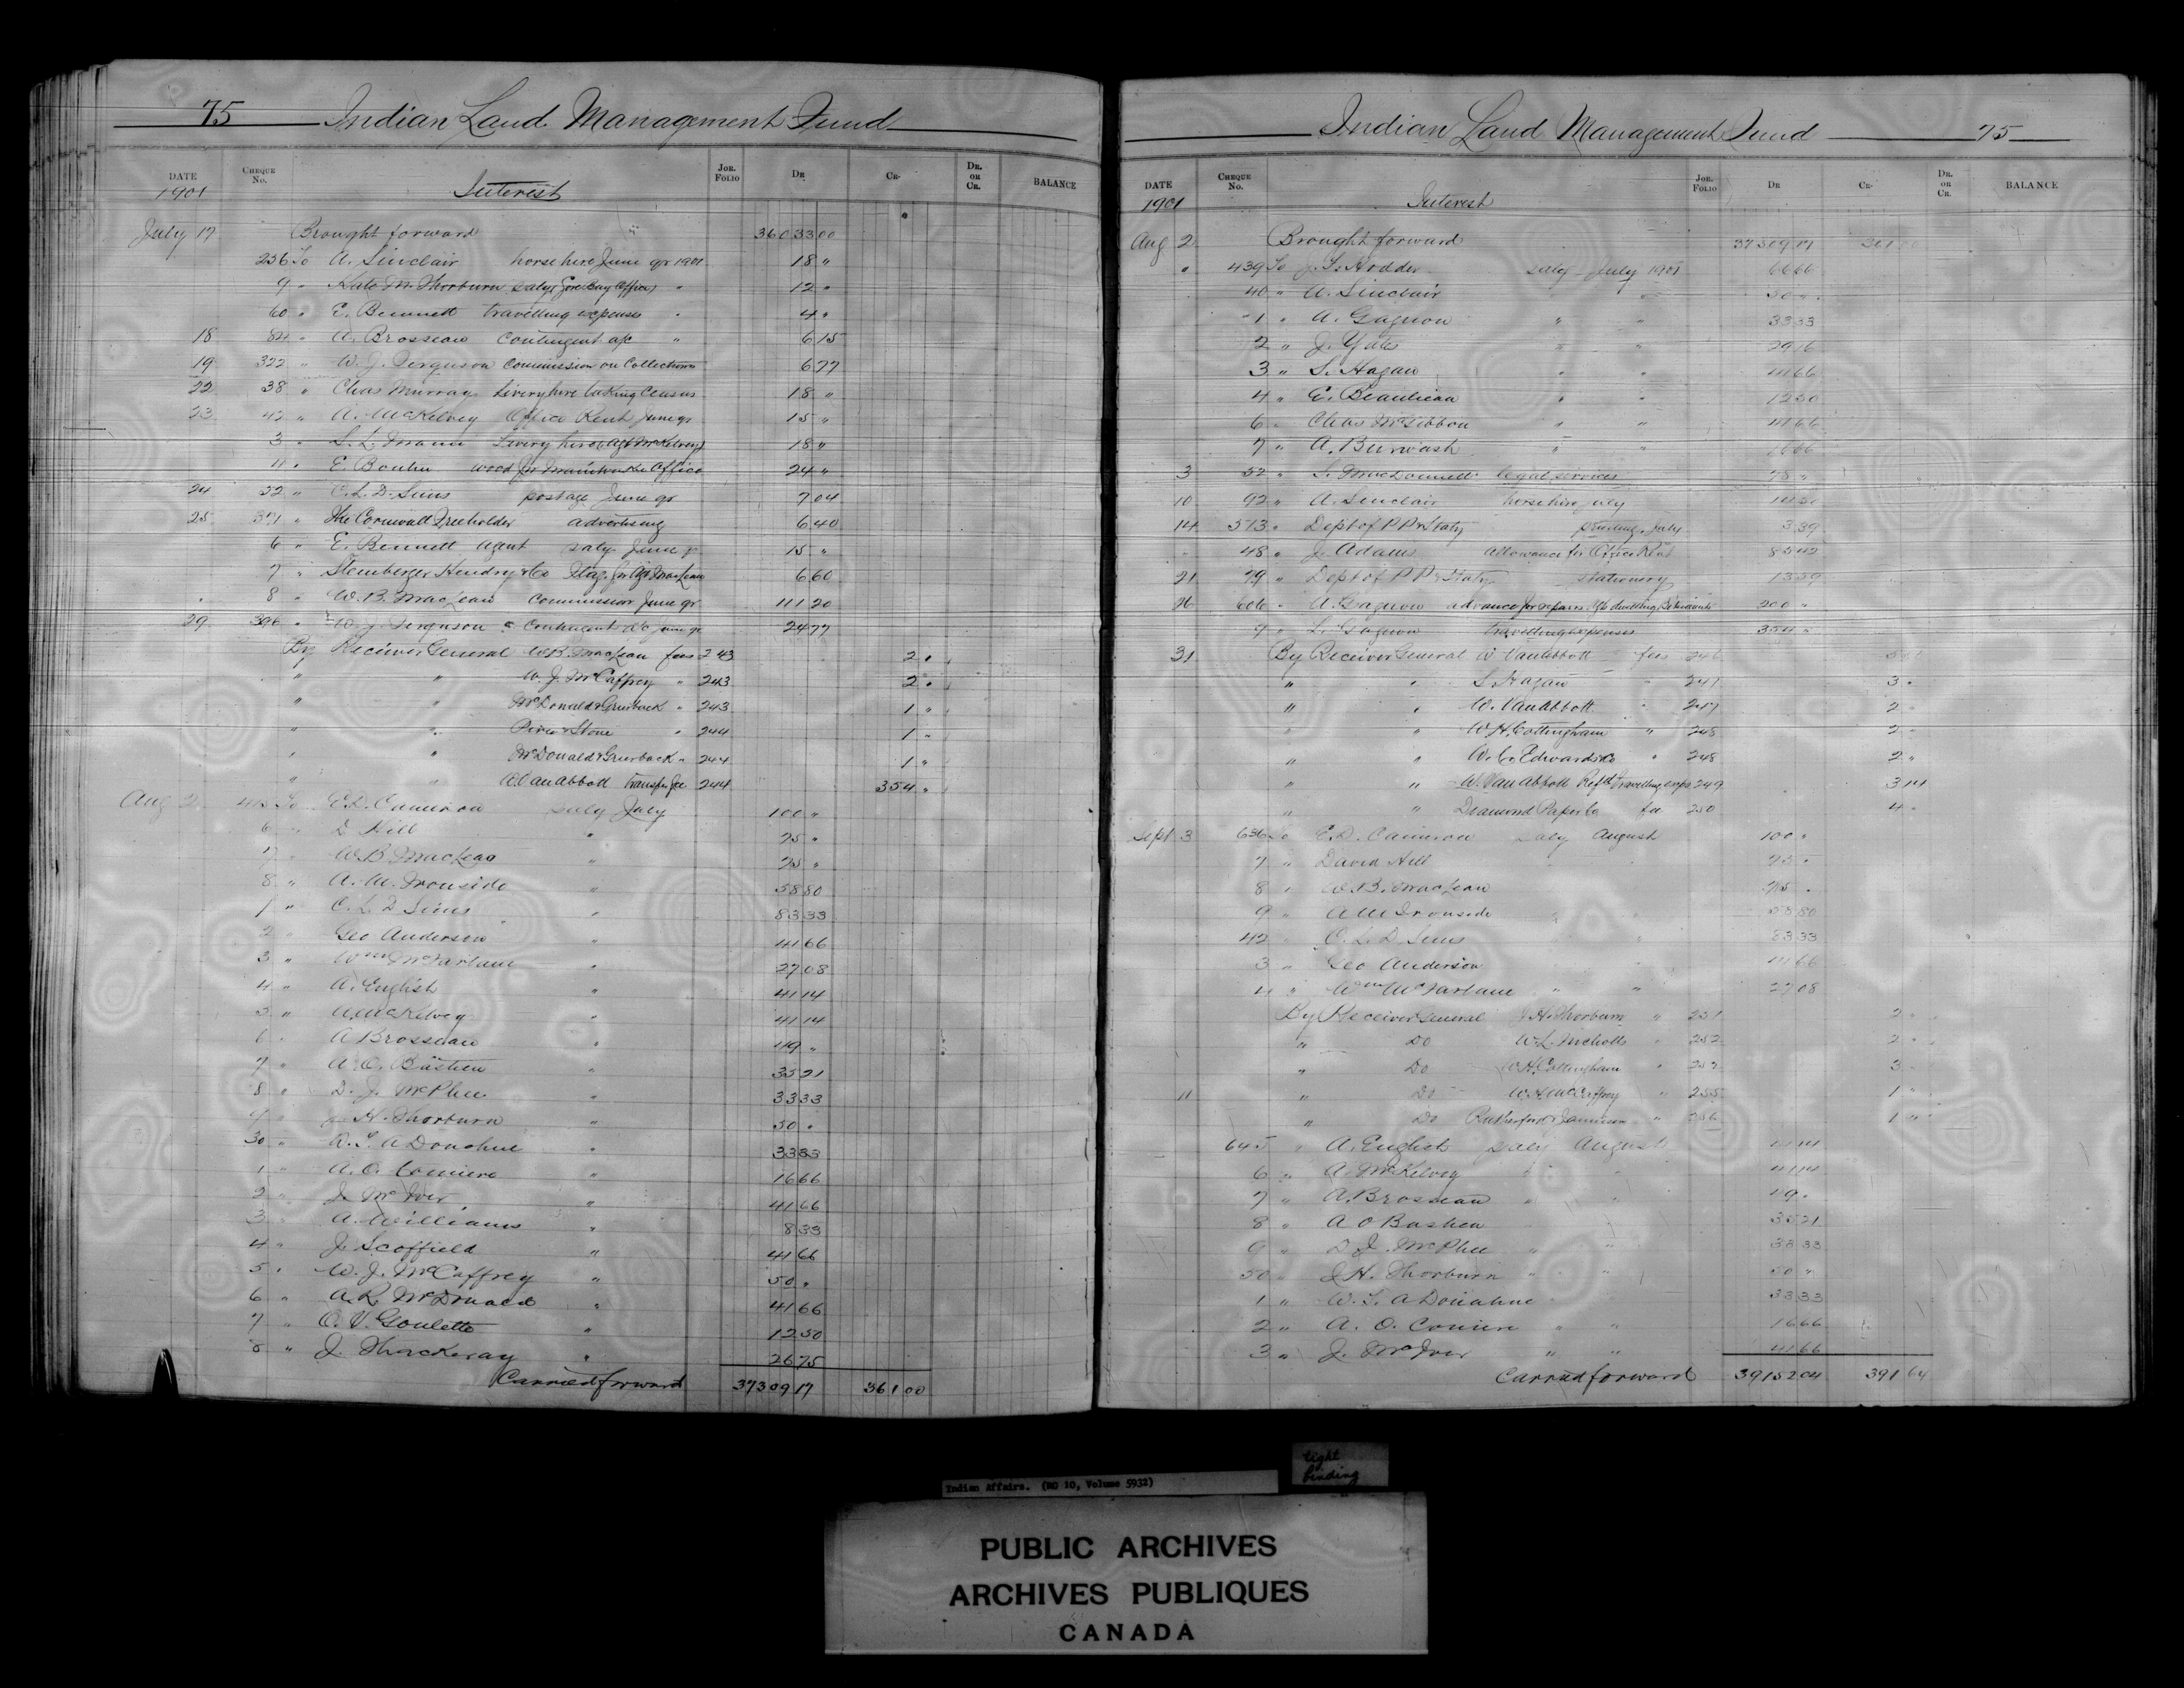 75 Indian Land Management Fund
DATE CHEQUE No. JOR. FOLIO DR CR. DR. OR CR. BALANCE
1901 Interest
July 17 Brought forward 36033 00
256 To A. Sinclair horse hire June qr 1901 18 "
9 " Kate M. Thorburn salry (Gore Bay Office) " 12 "
60 " E. Bennett travelling expenses " 4 "
18 84 " A. Brosseau Contingent a/c " 6 15
19 322 " W. J. Ferguson Commission on Collections 6 77
22 38 " Chas Murray Livery hire taking Census 18 "
23 42 " A. McKelvey Office Rent June qr 15 "
3 " S. L. Mann Livery hire (Agt McKelvey) 18 "
11 " E. Boulin wood for Office 24 "
24 52 " C. L. D. Sims postage June qr 7 04
25 371 " The Cornwall Freeholder advertising 6 40
6 " E. Bennett Agent salry June qr 15 "
7 " Steinberger Hendry & Co Flag for Agt MacLean 6 60
" 8 " W. B. MacLean Commission June qr 111 20
29 396 " W. J. Ferguson Contingent a/c June qr 24 77
By Receiver General W. B. MacLean fees 243 2 "
" " W. J. McCaffrey " 243 2 "
" " McDonald & 243 1 "
" " Price & Stone " 244 1 "
" " McDonald & " 244 1 "
" " W. Van Abbott transfer fee 244 354 "
Aug 2 415 To E. D. Cameron salry July 100 "
6 " D. Hill " 25 "
7 " W. B. MacLean " 25 "
8 " A. M. Ironside " 58 80
1 " C. L. D. Sims " 83 33
2 " Geo Anderson " 41 66
3 " Wm McFarlane " 27 08
4 " A. English " 41 14
5 " A. McKelvey " 41 14
6 " A Brosseau " 49 "
7 " A. O. Bastien " 35 21
8 " D. J. McPhee " 33 33
9 " J. H. Thorburn " 50 "
30 " A Donohue " 33 33
1 " A. O. " 16 66
2 " J. McIver " 41 66
3 " A. Williams " 8 33
4 " J. Scoffield " 41 66
5 " W. J. McCaffrey " 50 "
6 " A. R. McDonald " 41 66
7 " O. V. Goulette " 12 50
8 " J. Thackeray " 26 75
Carried forward 37309 17 361 00
Indian Land Management Fund 75
DATE CHEQUE No. JOR. FOLIO DR CR. DR. OR CR. BALANCE
1901 Interest
Aug 2 Brought forward 37309 17 361 00
" 439 To J. S. Hodder salry July 1901 66 66
40 " A. Sinclair " " 50 "
1 " A. Gagnon " " 33 33
2 " J. Yule " " 29 16
3 " S. Hagan " " 41 66
4 " E. Beaulieau " " 12 50
6 " Chas McGibbon " " 41 66
7 " A. Burwash " " 16 66
3 52 " legal services 78 "
10 92 " A. Sinclair horse hire July
14 513 " Dept of P P & Staty printing, July 3 39
" 48 " J. Adams Allowance for Office Rent
21 79 " Dept of P P & Staty stationery 13 59
26 606 " A. Gagnon advance for repairs 200 "
9 " L. Gagnon travelling expenses 354 "
31 By Receiver General W Van Abbott fees 246
" " S. Hagan " 247 3 "
" " W. Van Abbott " 247 2 "
" " W. H. Cottingham " 248 2 "
" " W. C. Edwards & Co " 248 2 "
" " W. Van Abbott Refd travelling exps 249 3 14
" " Diamond Paper Co fee 250 4 "
Sept 3 636 To E. D. Cameron salry August 100 "
7 " David Hill 25 "
8 " W. B. MacLean 25 "
9 " A M Ironside " " 58 80
42 " C. L. D. Sims " " 83 33
3 " Geo Anderson 41 66
4 " Wm McFarlane " " 27 08
By Receiver General J. H. Thorburn " 251 2 "
" Do W. L. Nicholls " 252 2 "
" Do W. H. Cottingham " 252 3 "
11 " Do McCaffrey " 255 1 "
" Do Rutherford & Jamieson " 256 1 "
645 " A. English salry August 41 14
6 " A. McKelvey " " 41 14
7 " A. Brosseau " " 49 "
8 " A O Bastien 35 21
9 " D. J. McPhee " " 33 33
50 " J H. Thorburn " " 50 "
1 " A Donahue 33 33
2 " A. O. " " 16 66
3 " J. McIver " " 41 66
Carried forward 39152 04 391 64
Indian Affairs. (RG 10, Volume 5932)
tight
binding
PUBLIC ARCHIVES
ARCHIVES PUBLIQUES
CANADA